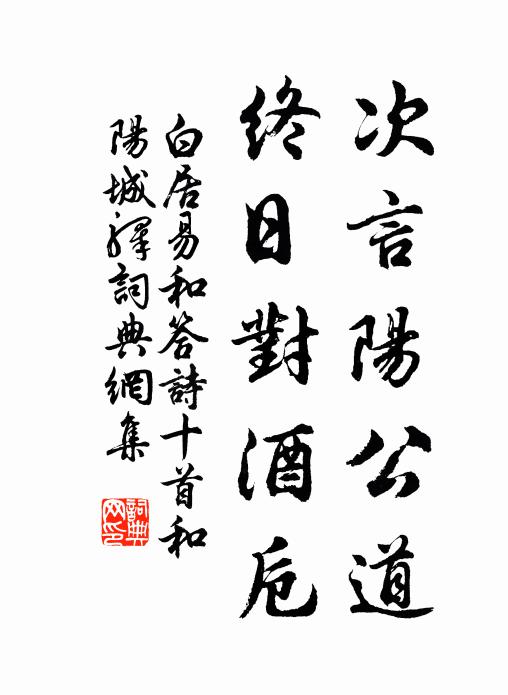 次言陽公道
終日對酒卮
白居易和答詩十首和
陽城驛詞典網集
詞典
网印